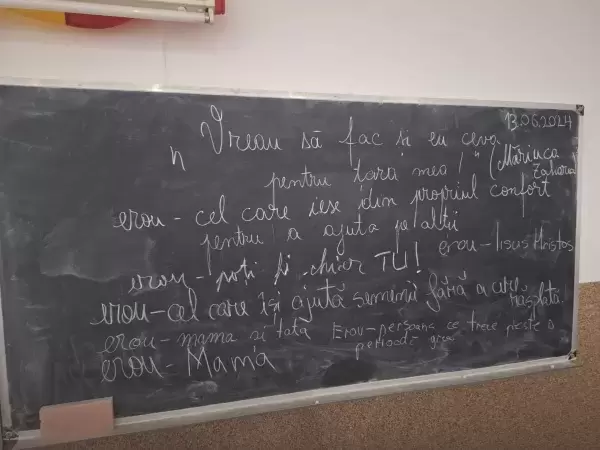 13.06.2024
„Vreau să fac și eu ceva
pentru țara mea!" (Măriuca Zaharia)
erou - cel care iese din propriul confort
pentru a ajuta pe alții
erou - Iisus Hristos
erou - poți fi chiar TU!
erou - cel care își ajută semenii fără a cere răsplată.
erou - mama si tată
Erou - persoana ce trece peste o
perioadă grea
erou - Mama